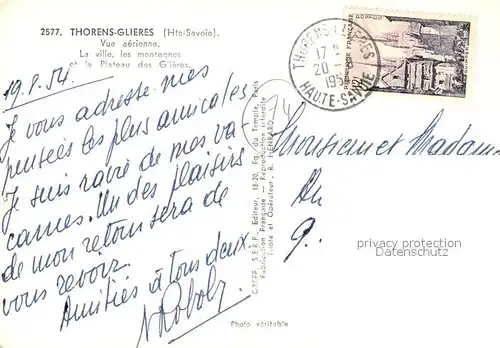 2577. THORENS-GLIERES (Hte-Savoie).
Vue aérienne.
La ville, les montagnes
et le Plateau des Glières.
19.8.54
Je vous adresse mes
pensées les plus amicales
Je suis ravie de mes va
cances. Un des plaisirs
de mon retour sera de
vous revoir.
Amitiés à tous deux.
THORENS-GLIERES
17 H
20 - 8
1954
HAUTE-SAVOIE
REPUBLIQUE FRANÇAISE
POSTES
Monsieur et Madame
74
privacy protection
Datenschutz
Editeur, 18-20, Fg. du Temple, Paris
Fabrication Française - Reproduction Interdite
Photo et Opérateur : R. HENRARD
Photo véritable